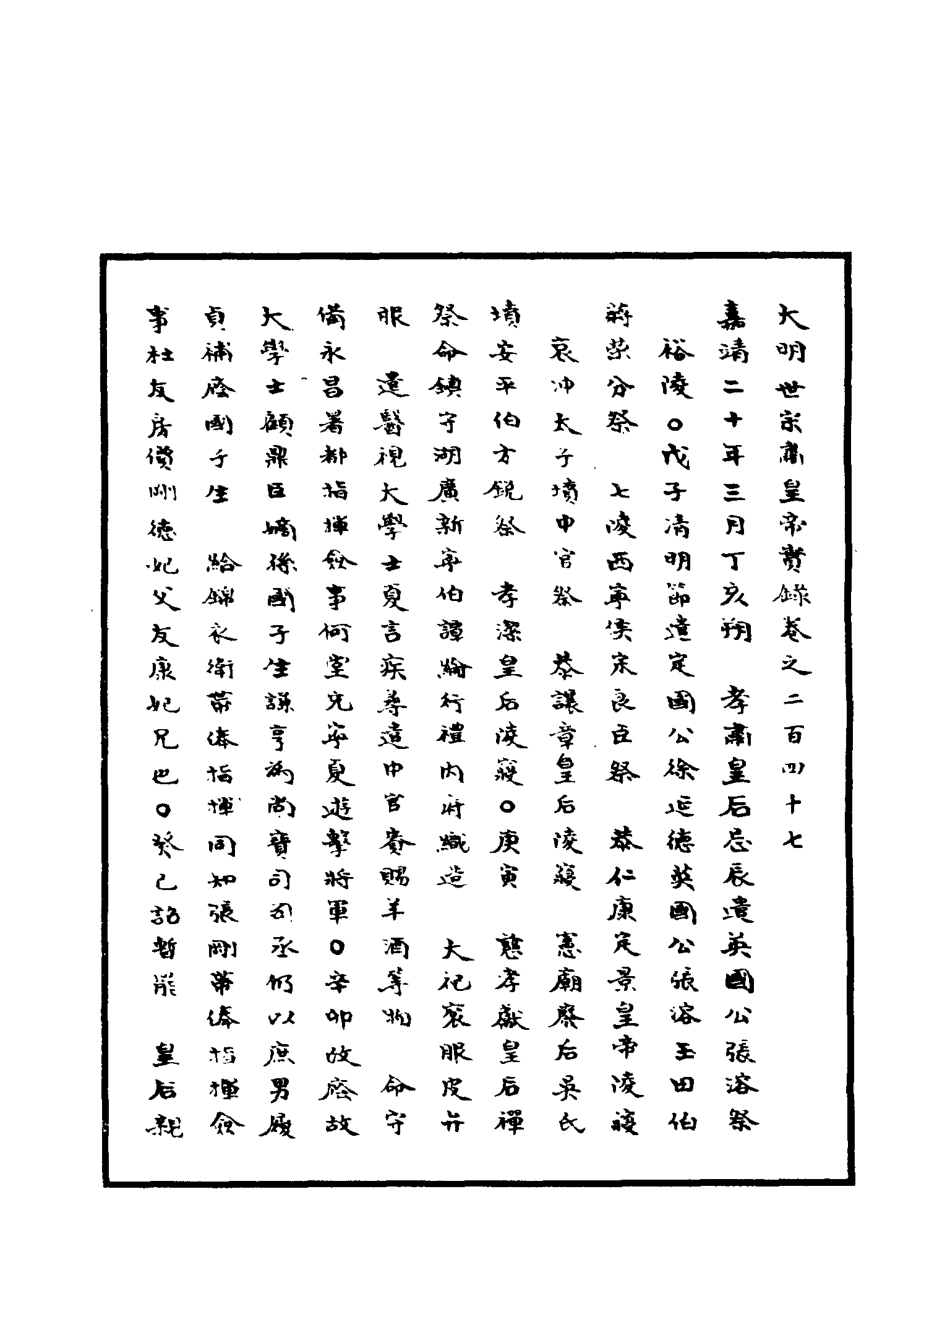 大明世宗肅皇帝實錄卷之二百四十七
嘉靖二十年三月丁亥朔　孝肅皇后忌辰遣英國公張溶祭
裕陵○戊子清明節遣定國公徐延德英國公張溶玉田伯
蔣榮分祭　七陵西寧侯宋良臣祭　恭仁康定景皇帝陵寢
哀冲太子墳中官祭　恭讓章皇后陵寢　憲廟廢后吳氏
墳安平伯方銳祭　孝潔皇后陵寢○庚寅　慈孝獻皇后禫
祭命鎮守湖廣新寧伯譚綸行禮內府織造　大祀袞服皮弁
服　遣醫視大學士夏言疾尋遣中官賚賜羊酒等物　命守
備永昌署都指揮僉事何堂充寧夏遊擊將軍○辛卯故廕故
大學士顧鼎臣嫡孫國子生謙亨為尚寶司司丞仍以庶男履
貞補廕國子生　給錦衣衛帶俸指揮同知張剛帶俸指揮僉
事杜友房價剛德妃父友康妃兄也○癸巳詔暫罷　皇后親